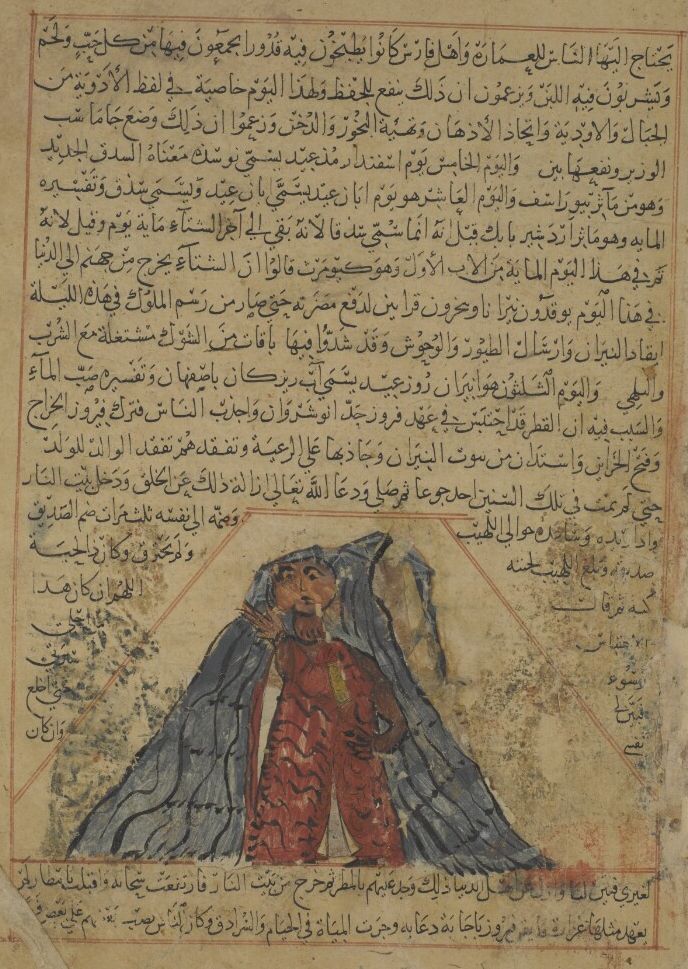 يحتاج اليها الناس للعمارة واهل فارس كانوا يطبخون فيه قدورا يجمعون فيها من كل حب ولحم
ويشربون فيه اللبن ويزعمون ان ذلك ينفع للحفظ ولهذا اليوم خاصية في لفظ الادوية من
الجبال والاودية واتخاذ الادهان وتهية البخور والدخن وزعموا ان ذلك وضع جاماسب
الوزير ونفعها بين واليوم الخامس يوم اسفندارمذ عيد يسمى نوسده معناه السدق الجديد
وهو من مآثر بيوراسف واليوم العاشر هو يوم ابان عيد يسمى بابان عيد ويسمى سذق وتفسيره
المايه وهو مآثر اردشير بابك قيل انه انما سمي سذقا لانه بقي الى آخر الشتاء ماية يوم وقيل لانه
تم في هذا اليوم الماية من الاب الاول وهو كيومرث قالوا ان الشتاء يخرج من جهنم الى الدنيا
في هذا اليوم يوقدون نيرانا ويبخرون قرابين لدفع مضرته حتى صار من رسم الملوك في هذه الليلة
ايقاد النيران وارسال الطيور والوحوش وقد شدوا فيها باقات من الشوك مشتعلة مع الشرب
والتلهي واليوم الثلثون هو انيران روز عيد يسمى آب ريزكان باصفهان وتفسيره صب الماء
والسبب فيه ان القطر قد احتبس في عهد فروز جد انوشروان واجدب الناس فترك فيروز الخراج
وفتح الخزاين واستدان من بيوت النيران وجاد بها على الرعية وتفقدهم تفقد الوالد للولد
حتى لم يمت في تلك السنين احد جوعا ثم صلى ودعا الله تعالى ازالة ذلك عن الخلق ودخل بيت النار
وادار يده وساعده حوالي اللهيب وضمه الى نفسه ثلث مرات ضم الصديق
صديقه وبلغ اللهيب لحيته ولم يحترق وكان ذا لحية
كثه ثم قال اللهم ان كان هذا
الاحتباس اجلي
وسوء سيرتي
فبين لي حتى اخلع
نفسي وان كان
لغيري فبين لاهل الدنيا ذلك وجد عليهم بالمطر ثم خرج من بيت النار فارتفعت سحابة واقبلت بامطار لم
يعهد مثلها غزارة فيروز باجابة دعايه وجرت المياة في الخيام والسرادق وكان الناس يصب بعضهم على بعض